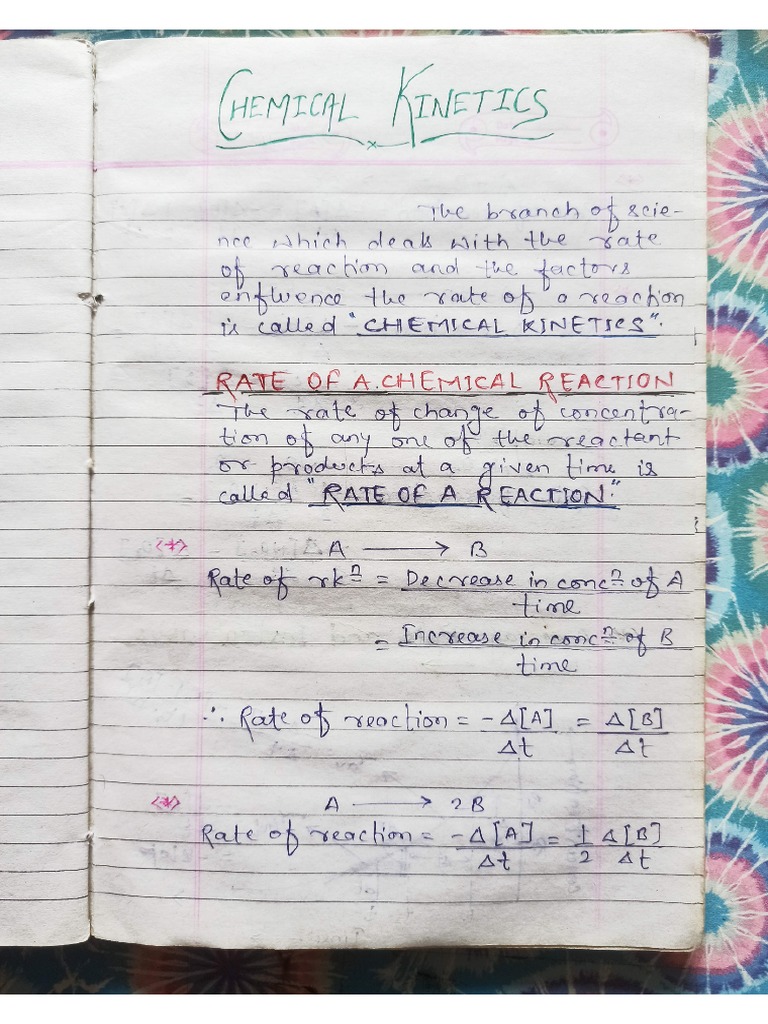 CHEMICAL KINETICS
The branch of scie-
nce which deals with the rate
of reaction and the factors
enfluence the rate of a reaction
is called "CHEMICAL KINETICS".
RATE OF A CHEMICAL REACTION
The rate of change of concentra-
tion of any one of the reactant
or products at a given time is
called "RATE OF A REACTION."
<*> A ⟶ B
Rate of rkⁿ = Decrease in concⁿ of A
time
= Increase in concⁿ of B
time
∴ Rate of reaction = -Δ[A] = Δ[B]
Δt Δt
<*> A ⟶ 2B
Rate of reaction = -Δ[A] = 1 Δ[B]
Δt 2 Δt